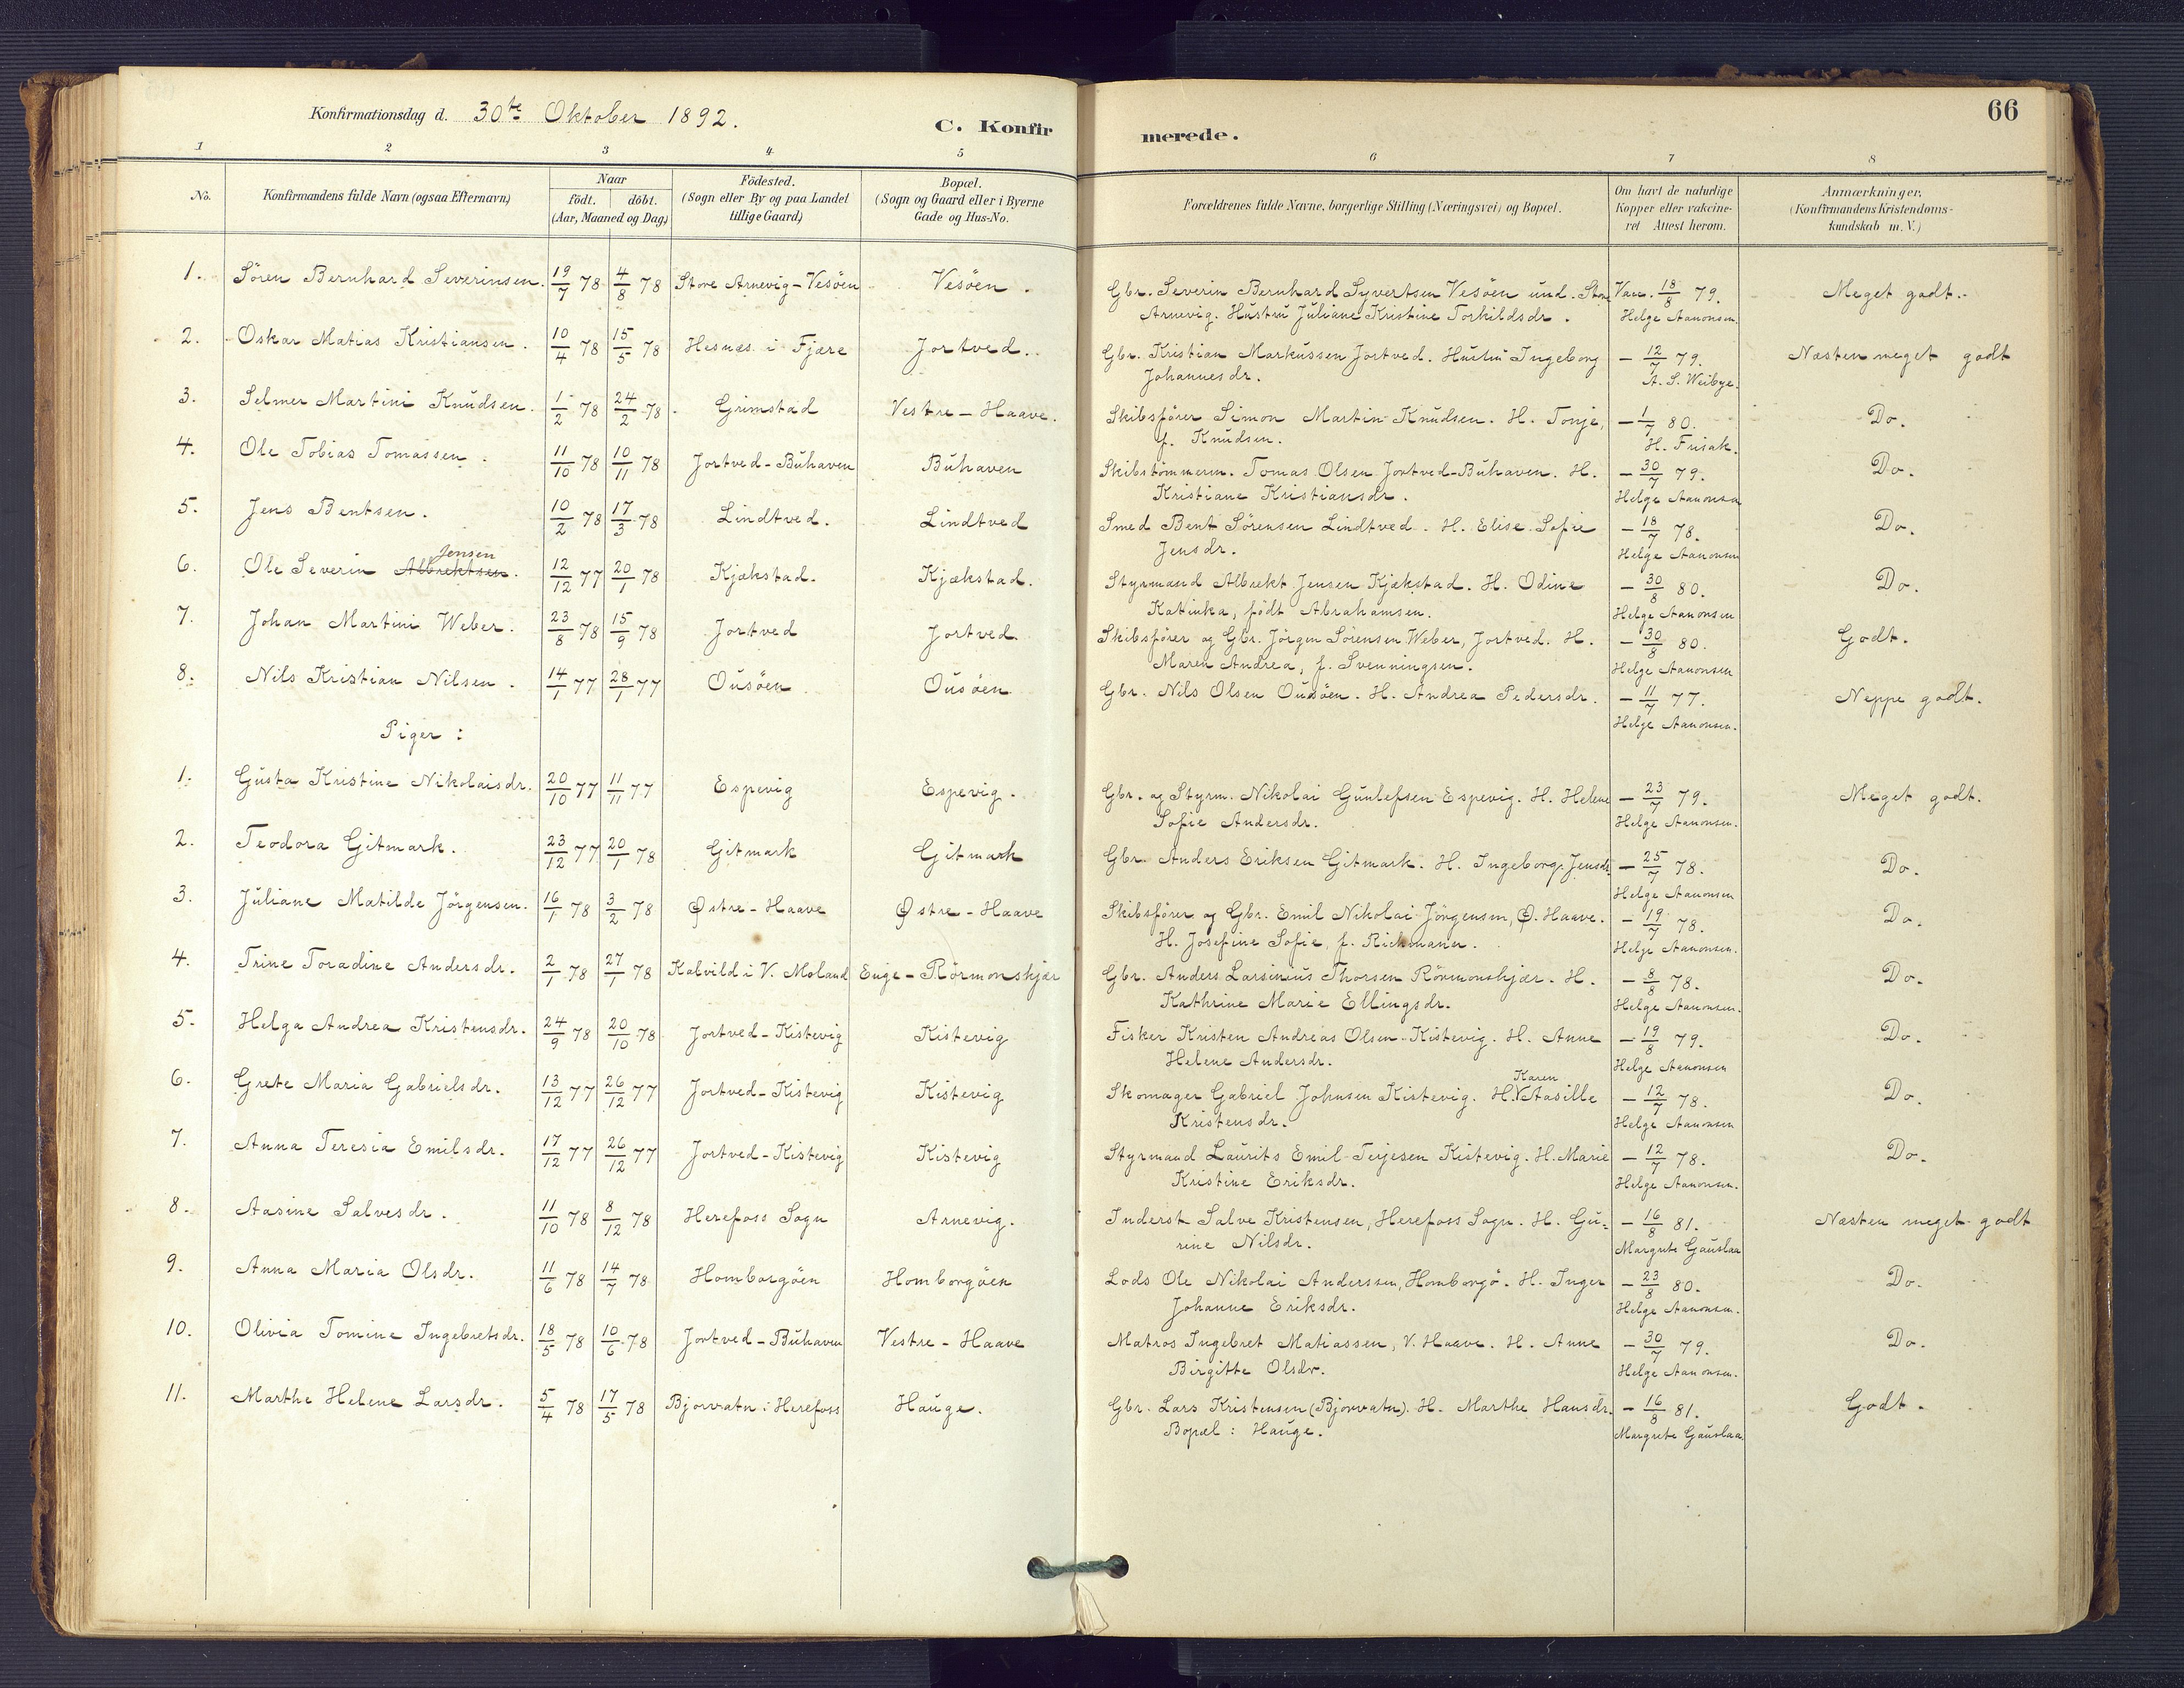 Konfirmationsdag d. 30te Oktober 1892.
C. Konfirmerede.
66
1 2 3 4 5 6 7 8
No.
Konfirmandens fulde Navn (ogsaa Efternavn)
Naar
födt. döbt.
(Aar, Maaned og Dag.)
Födested.
(Sogn eller By og paa Landet
tillige Gaard.)
Bopæl.
(Sogn og Gaard eller i Byerne
Gade og Hus-No.
Forældrenes fulde Navne, borgerlige Stilling (Næringsvei) og Bopæl.
Om havt de naturlige
Kopper eller vakcine-
ret Attest herom.
Anmærkninger.
(Konfirmandens Kristendoms-
kundskab m. V.)
1. Sören Bernhard Severinsen. 19/7 78 4/8 78 Store Arnevig-Vesöen Vesöen. Gbr. Severin Bernhard Syvertsen Vesöen und. Store Vac. 18/8 79. Meget godt.
Arnevig. Hustru Juliane Kristine Torkildsdr. Helge Aanonsen.
2. Oskar Matias Kristiansen. 10/4 78 15/5 78 Hesnæs i Fjære Jortved. Gbr. Kristian Markussen Jortved. Hustru Ingeborg – 12/7 79. Næsten meget godt
Johannesdr. A. S. Weibye.
3. Selmer Martini Knudsen. 1/2 78 24/2 78. Grimstad Vestre-Haave. Skibsfører Simon Martin Knudsen. H. Tonje, – 1/7 80. Do.
f. Knudsen. H. Frisak.
4. Ole Tobias Tomassen. 11/10 78 10/11 78 Jortved-Buhaven Buhaven Skibstömmerm. Tomas Olsen Jortved-Buhaven. H. – 30/7 79. Do.
Kristiane Kristiansdr. Helge Aanonsen
5. Jens Bentsen. 10/2 78 17/3 78 Lindtved. Lindtved Smed Bent Sörensen Lindtved. H. Elise Sofie – 18/7 78. Do.
Jensdr. Helge Aanonsen
Jensen
6. Ole Severin Albrektsen. 12/12 77 20/1 78 Kjækstad. Kjækstad. Styrmand Albrekt Jensen Kjækstad. H. Odine – 30/8 80. Do.
Katinka, födt Abrahamsen. Helge Aanonsen
7. Johan Martini Weber. 23/8 78 15/9 78 Jortved Jortved Skibsfører og Gbr. Jörgen Sörensen Weber, Jortved. H. – 30/8 80. Godt.
Maren Andrea, f. Svenningsen. Helge Aanonsen
8. Nils Kristian Nilsen. 14/1 77 28/1 77 Ousöen Ousöen Gbr. Nils Olsen Ousöen. H. Andrea Pedersdr. – 11/7 77. Neppe godt.
Helge Aanonsen.
Piger:
1. Gusta Kristine Nikolaisdr. 20/10 77 11/11 77 Espevig Espevig. Gbr. og Styrm. Nikolai Gunlefsen Espevig. H. Helene – 23/7 79. Meget godt.
Sofie Andersdr. Helge Aanonsen.
2. Teodora Gitmark. 23/12 77 20/1 78 Gitmark Gitmark Gbr. Anders Eriksen Gitmark. H. Ingeborg Jensdr. – 25/7 78. Do.
Helge Aanonsen
3. Juliane Matilde Jörgensen. 16/1 78 3/2 78 Østre-Haave Østre-Haave Skibsfører og Gbr. Emil Nikolai Jörgensen, Ø. Haave. – 19/7 78. Do.
H. Josefine Sofie, f. Richmann. Helge Aanonsen.
4. Trine Toradine Andersdr. 2/1 78 27/1 78 Kalvild i V. Moland Enge-Rörmonskjær Gbr. Anders Larsinius Thorsen Rörmonskjær. H. – 8/8 78. Do.
Kathrine Marie Ellingsdr. Helge Aanonsen.
5. Helga Andrea Kristensdr. 24/9 78 20/10 78 Jortved-Kistevig Kistevig Fisker Kristen Andreas Olsen Kistevig. H. Anne – 19/8 79. Do.
Helene Andersdr. Helge Aanonsen
Karen
6. Grete Maria Gabrielsdr. 13/12 77 26/12 77 Jortved-Kistevig Kistevig Skomager Gabriel Johnsen Kistevig. H. Aasille – 12/7 78. Do.
Kristensdr. Helge Aanonsen
7. Anna Teresia Emilsdr. 17/12 77 26/12 77 Jortved-Kistevig Kistevig Styrmand Laurits Emil Terjesen Kistevig. H. Marie – 12/7 78. Do.
Kristine Eriksdr. Helge Aanonsen.
8. Aasine Salvesdr. 11/10 78 8/12 78 Herefoss Sogn Arnevig. Inderst Salve Kristensen, Herefoss Sogn. H. Gu- – 16/8 81. Næsten meget godt
rine Nilsdr. Margrete Gauslaa
9. Anna Maria Olsdr. 11/6 78 14/7 78 Homborgöen Homborgöen Lods Ole Nikolai Anderssen, Homborgö. H. Inger – 23/8 80. Do.
Johanne Eriksdr. Helge Aanonsen.
10. Olivia Tomine Ingebretsdr. 18/5 78 10/6 78 Jortved-Buhaven Vestre-Haave Matros Ingebret Matiassen, V. Haave. H. Anne – 30/7 79. Do.
Birgitte Olsdr. Helge Aanonsen.
11. Marthe Helene Larsdr. 5/4 78 17/5 78 Bjorvatn i Herefoss Hauge. Gbr. Lars Kristensen (Bjorvatn). H. Marthe Hansdr. – 16/8 81. Godt.
Bopæl: Hauge. Margrete Gauslaa.